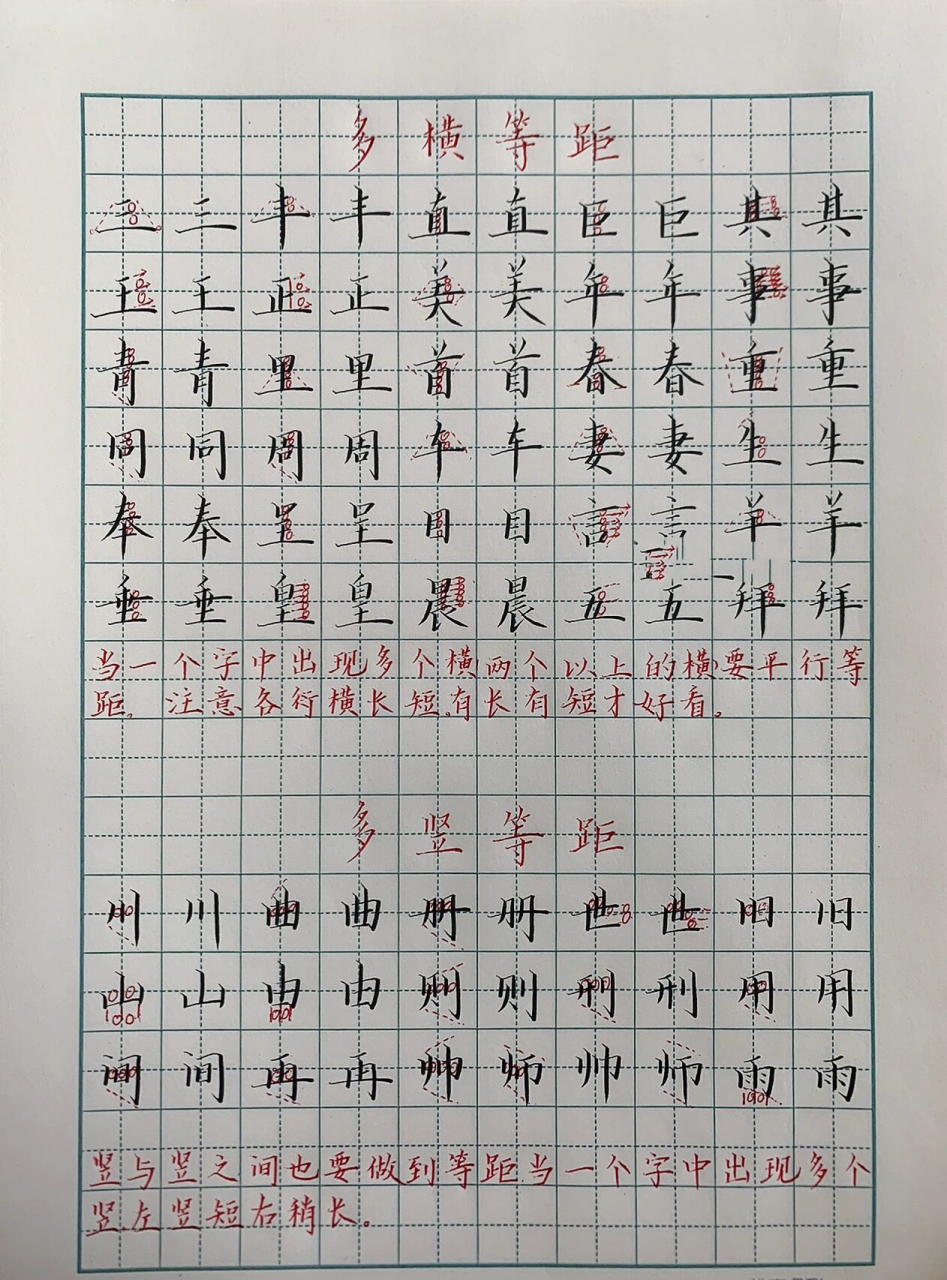 多横等距
三三丰丰直直巨巨其其
王王正正美美年年事事
青青里里首首春春重重
同同周周车车妻妻生生
奉奉呈呈目目言言羊羊
垂垂皇皇晨晨五五拜拜
当一个字中出现多个横两个以上的横要平行等
距。注意各行横长短.有长有短才好看。
多竖等距
川川曲曲册册世世旧旧
山山由由则则刑刑用用
间间再再帅师帅师雨雨
竖与竖之间也要做到等距当一个字中出现多个
竖左竖短右稍长。